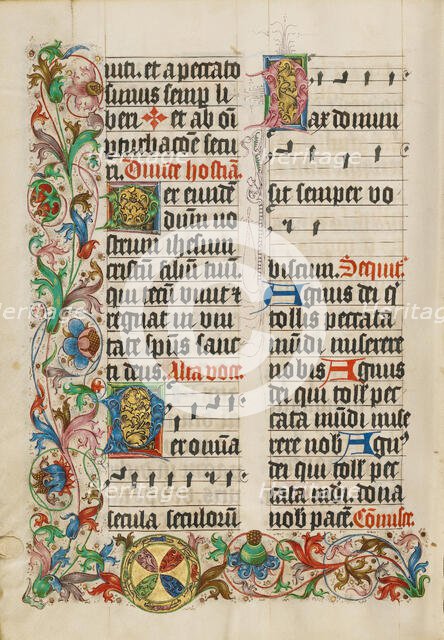 iuti. et a peccato
simus semp li
beri ✠ et ab oi
p̱turbac̄oe secu
ri. Divide hostiā.
Per eundē
dn̄um no
strum ihesum
cristū filiū tuū.
qui tecū vivit ⁊
regnat in uni
tate spūs sanc
ti deus. Alta voce.
Per om̄ia
secula seculorū
Pax domini
sit semper vo
biscum. Sequit̄
Agnus dei q̄
tollis peccata
mūdi miserere
nobis Agnus
dei qui toll̄ pec
cata mūdi mise
rere nob̄ Agn̄
dei qui toll̄ pec
cata mūdi dona
nob̄ pacē. Cōmisce.
Heritage
Images